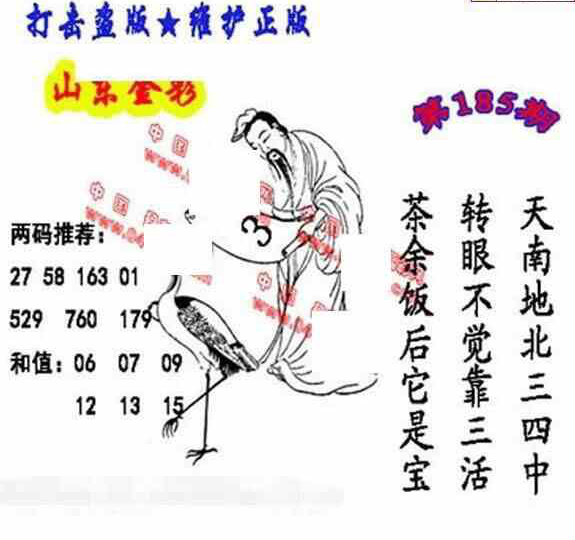 打击盗版★维护正版
山东金彩
第185期
天南地北三四中
转眼不觉靠三活
茶余饭后它是宝
中国
www.
中国
www.04
3
两码推荐:
27 58 163 01
529 760 179
和值: 06 07 09
12 13 15